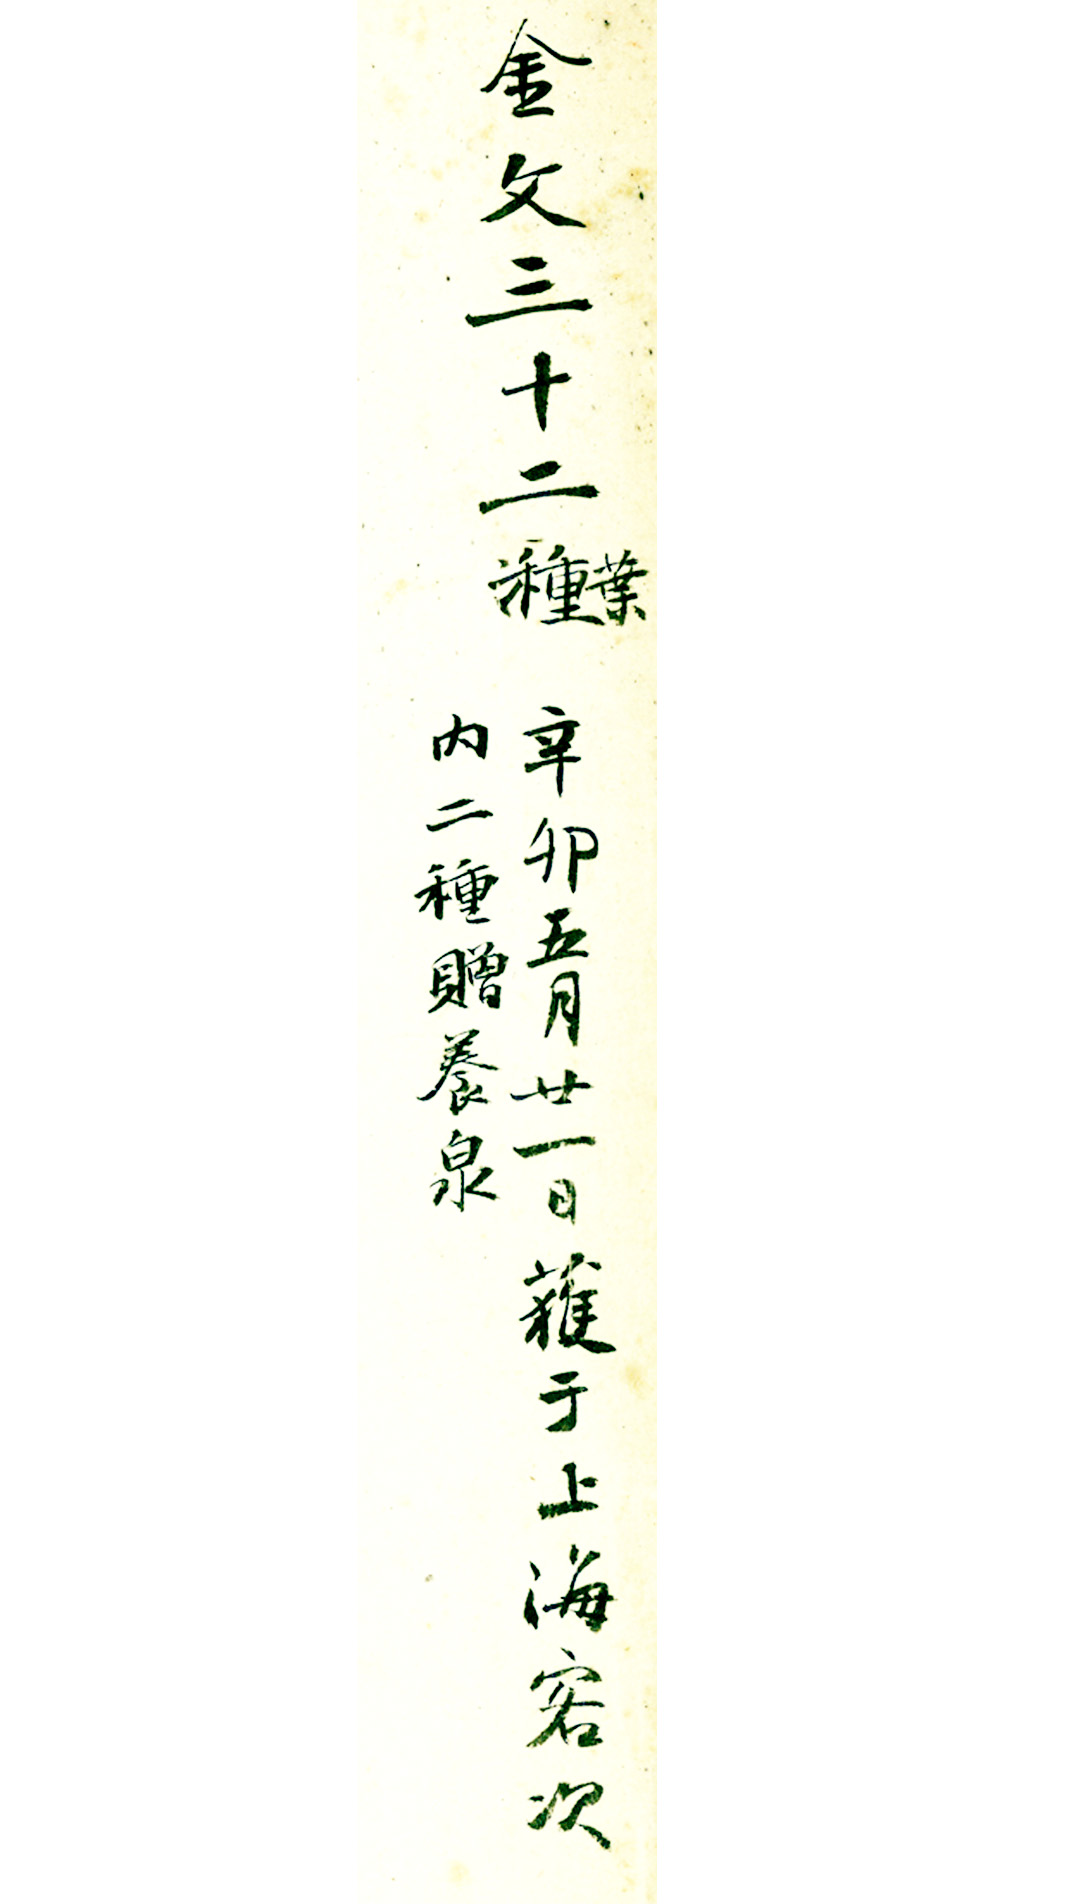 金文三十二種葉
辛卯五月廿一日蒦于上海客次
内二種贈養泉